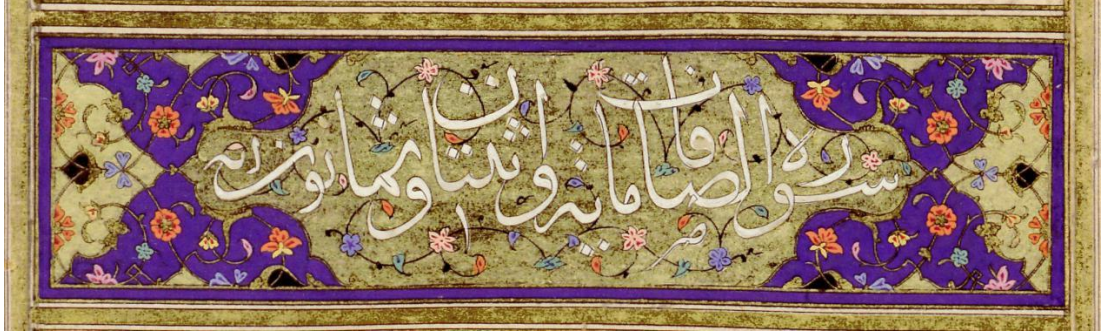 سورة الصافات مائة واثنتان وثمانون اية